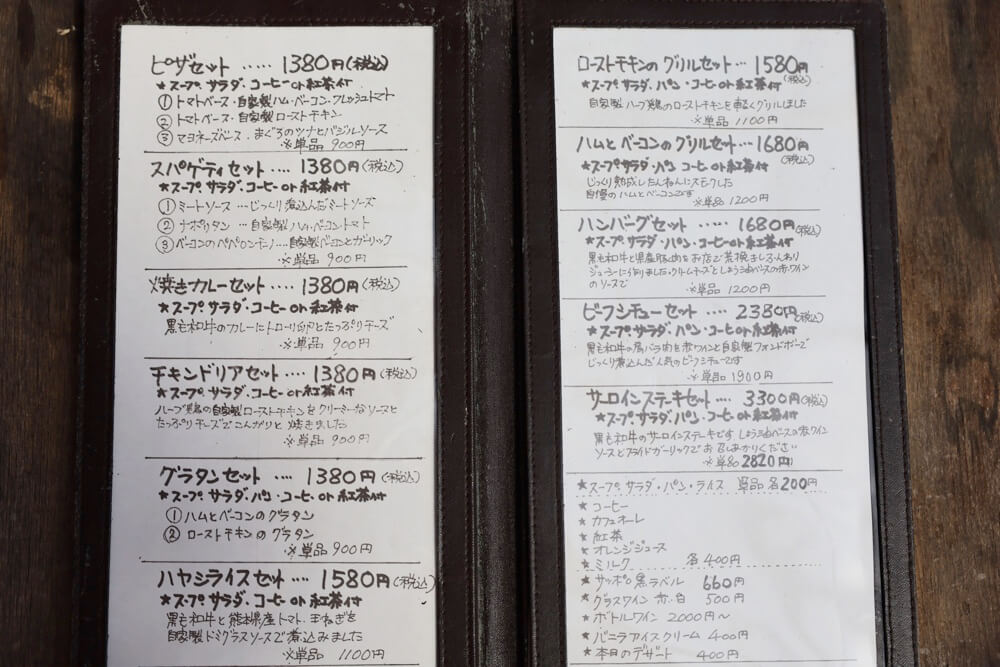 ピザセット ····· 1380円(税込)
★スープ.サラダ.コーヒーor紅茶付
①トマトベース・自家製ハム・ベーコン・フレッシュトマト
②トマトベース・自家製ローストチキン
③マヨネーズベース.まぐろのツナとバジルソース
※単品 900円
スパゲティセット ···· 1380円(税込)
★スープ.サラダ.コーヒーor紅茶付
①ミートソース …じっくり煮込んだミートソーズ
②ナポリタン …自家製ハム・ベーコントマト
③ベーコンのペペロンチーノ…自家製ベーコンとガーリック
※単品 900円
焼きカレーセット ···· 1380円(税込)
★スープ.サラダ.コーヒーor紅茶付
黒毛和牛のカレーにトローリ卵とたっぷりチーズ
※単品 900円
チキンドリアセット ···· 1380円(税込)
★スープ.サラダ.コーヒーor紅茶付
ハーブ鶏の自家製ローストチキンをクリーミーなソースと
たっぷりチーズでこんがりと焼きました
※単品 900円
グラタンセット ···· 1380円(税込)
★スープ.サラダ.パン.コーヒーor紅茶付
①ハムとベーコンのグラタン
②ローストチキンのグラタン
※単品 900円
ハヤシライスセット ···· 1580円(税込)
★スープ.サラダ.コーヒーor紅茶付
黒毛和牛と熊本県産トマト.玉ねぎを
自家製ドミグラスソースで煮込みました
※単品 1100円
ローストチキンのグリルセット… 1580円
(税込)
★スープ.サラダ.パン.コーヒーor紅茶付
自家製ハーブ鶏のローストチキンを軽くグリルしました
※単品 1100円
ハムとベーコンのグリルセット… 1680円
(税込)
★スープ.サラダ・パン コーヒーor紅茶付
じっくり熟成したんねんにスモークした
自慢のハムとベーコンです
※単品 1200円
ハンバーグセット ····· 1680円(税込)
★スープ.サラダ・パン・コーヒーor紅茶付
黒毛和牛と県産豚肉をお店で荒挽きしふんわり
ジューシーに作りました.クリームチーズとしょう油ベースの赤ワイン
のソースで
※単品 1200円
ビーフシチューセット ···· 2380円(税込)
★スープ.サラダ.パン・コーヒーor紅茶付
黒毛和牛の肩バラ肉を赤ワインと自家製フォンドボーで
じっくり煮込んだ人気のビーフシチューです
※単品 1900円
サーロインステーキセット ···· 3300円(税込)
★スープ.サラダ.パン.コーヒーor紅茶付
黒毛和牛のサーロインステーキです しょう油ベースの赤ワイン
ソースとフライドガーリックでお召しあがりください
※単品 2820円
★スープ.サラダ・パン・ライス 単品 各200円
★コーヒー
★カフェオーレ
★紅茶
★オレンジジュース
★ミルク 各400円
★サッポロ黒ラベル 660円
★グラスワイン 赤.白 500円
★ボトルワイン 2000円～
★バニラアイスクリーム 400円
★本日のデザート 400円